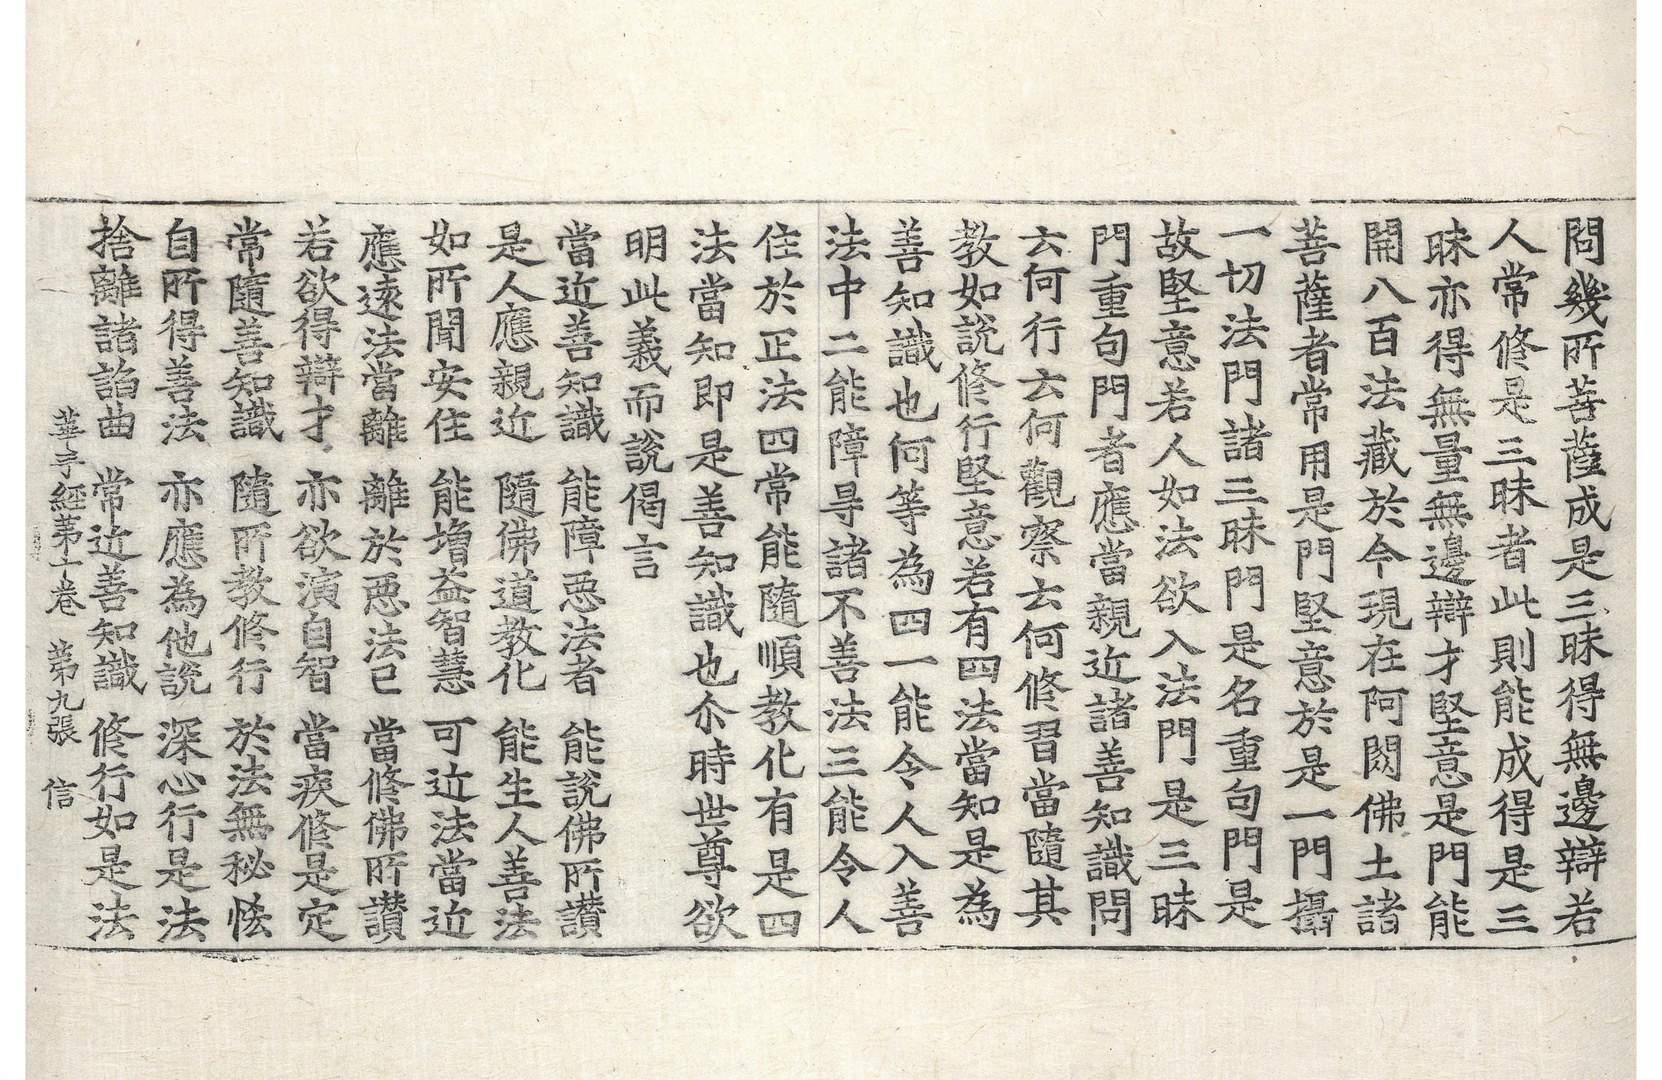 問幾所菩薩成是三昧得無邊辯若
人常修是三昧者此則能成得是三
昧亦得無量無邊辯才堅意是門能
開八百法藏於今現在阿閦佛土諸
菩薩者常用是門堅意於是一門攝
一切法門諸三昧門是名重句門是
故堅意若人如法欲入法門是三昧
門重句門者應當親近諸善知識問
云何行云何觀察云何修習當隨其
教如說修行堅意若有四法當知是為
善知識也何等為四一能令人入善
法中二能障㝵諸不善法三能令人
住於正法四常能隨順教化有是四
法當知即是善知識也尒時世尊欲
明此義而說偈言
當近善知識　能障惡法者　能說佛所讃
是人應親近　隨佛道教化　能生人善法
如所聞安住　能增益智慧　可近法當近
應遠法當離　離於惡法已　當修佛所讃
若欲得辯才　亦欲演自智　當疾修是定
常隨善知識　隨所教修行　於法無秘悋
自所得善法　亦應為他說　深心行是法
捨離諸諂曲　常近善知識　修行如是法
華手經第十卷　第九張　信